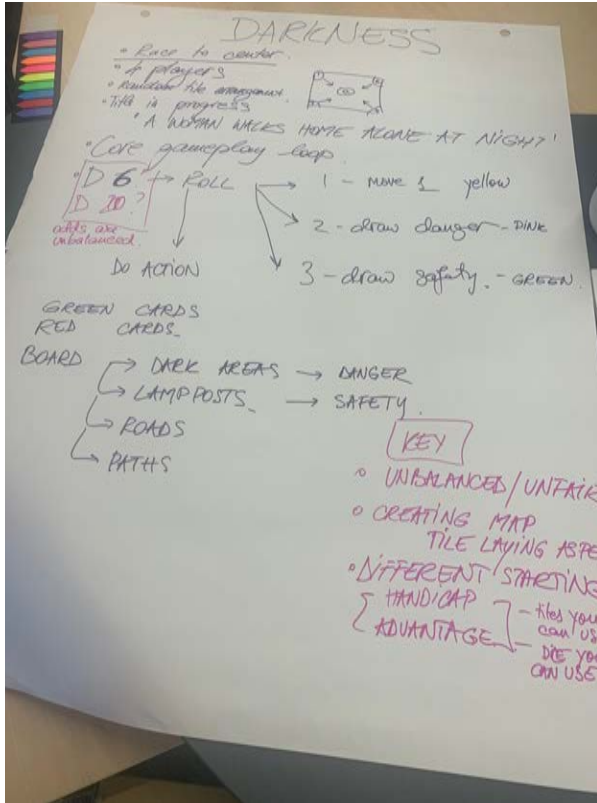 DARKNESS
• Race to center.
• 4 players
• Random tile arrangement.
• Title in progress
"A WOMAN WALKS HOME ALONE AT NIGHT'
• Core gameplay loop.
• D 6? → ROLL → 1 - MOVE 1 yellow
D 20?
odds are unbalanced.
2 - draw danger - PINK
DO ACTION
3 - draw safety. - GREEN.
GREEN CARDS
RED CARDS
BOARD → DARK AREAS → DANGER
→ LAMPPOSTS → SAFETY.
→ ROADS
→ PATHS
KEY
• UNBALANCED/UNFAIR
• CREATING MAP
TILE LAYING ASPE
• DIFFERENT STARTING
HANDICAP - tiles you
can us
ADVANTAGE - DIE YO
CAN USE